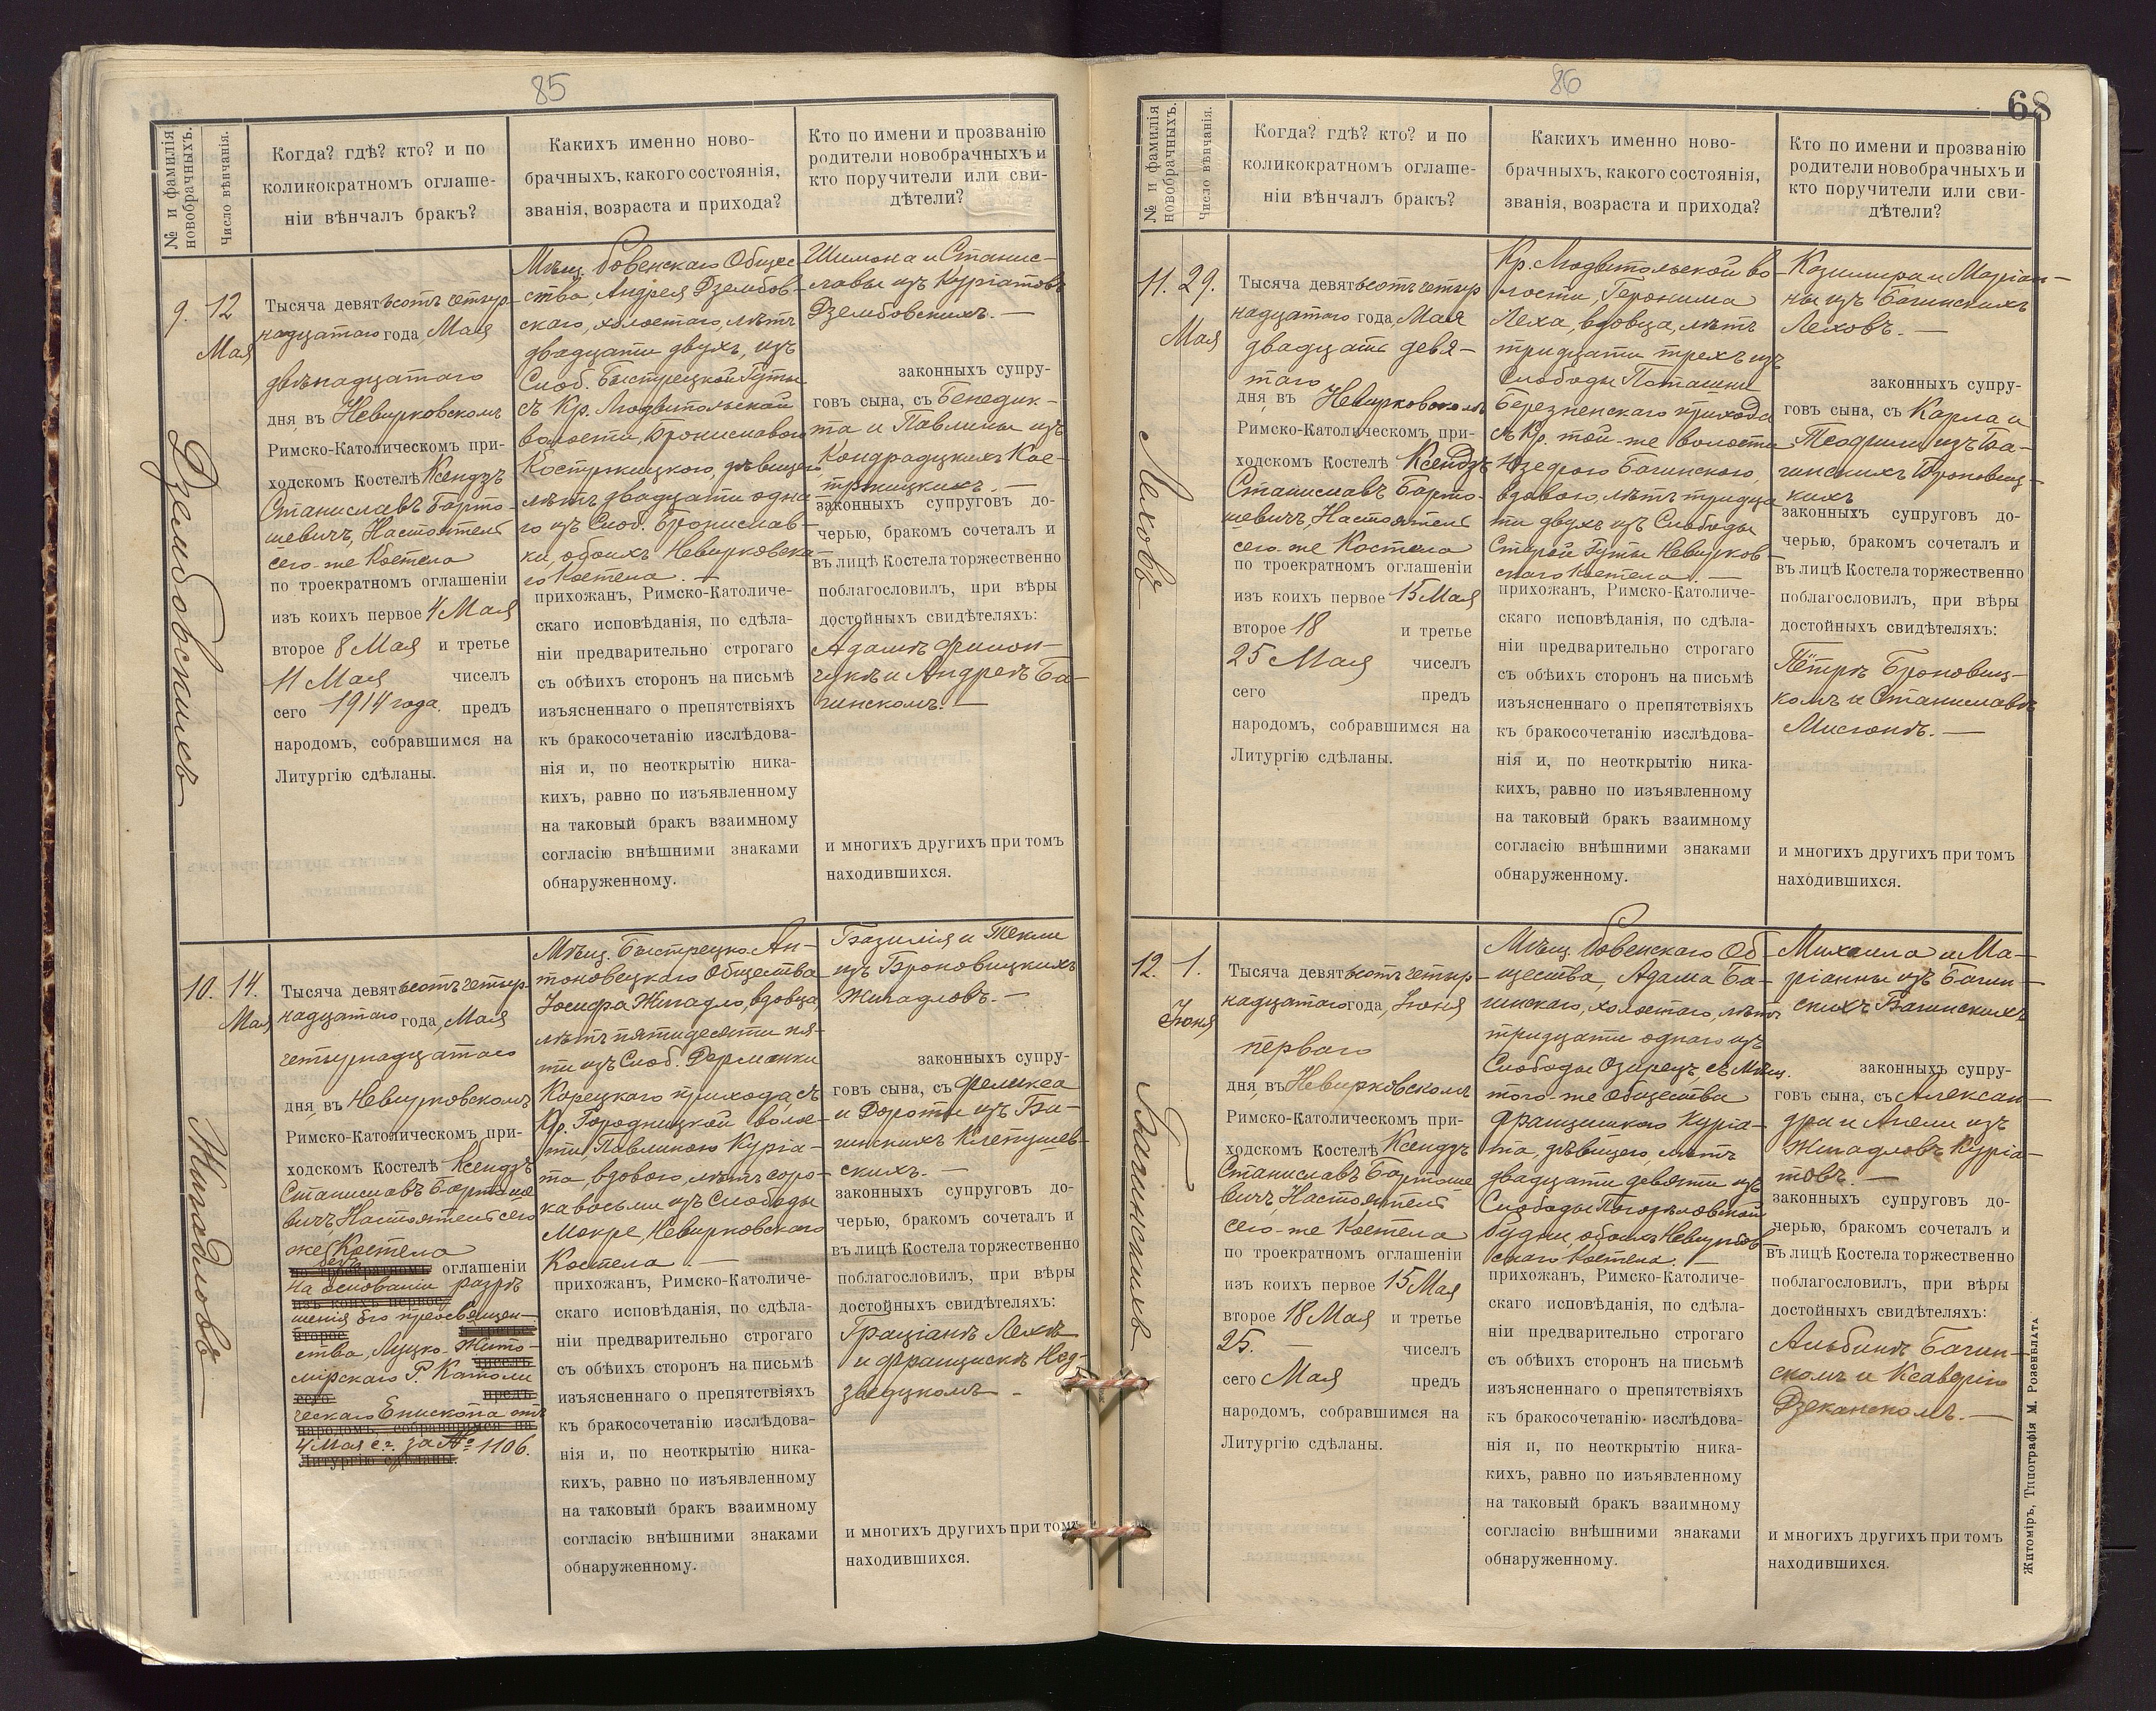 85
№ и фамилія новобрачныхъ.
Число вѣнчанія.
Когда? гдѣ? кто? и по
коликократномъ оглаше-
ніи вѣнчалъ бракъ?
Какихъ именно ново-
брачныхъ, какого состоянія,
званія, возраста и прихода?
Кто по имени и прозванію
родители новобрачныхъ и
кто поручители или сви-
дѣтели?
9.
12
Мая
Дзембовскихъ
Тысяча девятьсотъ четыр-
надцатаго года Мая
двѣнадцатаго
дня въ Невирковскомъ
Римско-Католическомъ при-
ходскомъ Костелѣ Ксендзъ
Станиславъ Барто-
шевичъ, Настоятель
сего-же Костела
по троекратномъ оглашеніи
изъ коихъ первое 4 Мая
второе 8 Мая и третье
11 Мая чиселъ
сего 1914 года. предъ
народомъ, собравшимся на
Литургію сдѣланы.
Мѣщ. Ровенскаго Общес
ства, Андрея Дзембов-
скаго, холостаго, лѣтъ
двадцати двухъ, изъ
Слоб. Быстрецкой Гуты
съ Кр. Людвипольской
волости, Брониславою
Костржицкого, дѣвицею
лѣтъ двадцати одна-
го изъ Слоб. Бронислав-
ки, обоихъ Невирковска-
го Костела. —
прихожанъ, Римско-Католиче-
скаго исповѣданія, по сдѣла-
ніи предварительно строгаго
съ обѣихъ сторонъ на письмѣ
изъясненнаго о препятствіяхъ
къ бракосочетанію изслѣдова-
нія и, по неоткрытію ника-
кихъ, равно по изъявленному
на таковый бракъ взаимному
согласію внѣшними знаками
обнаруженному.
Шимона и Станис-
лавы изъ Куріатовъ
Дзембовскихъ. —
законныхъ супру-
говъ сына, съ Бенедик-
та и Павлины изъ
Кондрацкихъ Кос-
тржицкихъ. —
законныхъ супруговъ до-
черью, бракомъ сочеталъ и
въ лицѣ Костела торжественно
поблагословилъ, при вѣры
достойныхъ свидѣтеляхъ:
Адамѣ Филон-
чукѣ и Андреѣ Ба-
гинскомъ. —
и многихъ другихъ при томъ
находившихся.
10.
14.
Мая
Жигадловъ
Тысяча девятьсотъ четыр-
надцатаго года, Мая
четырнадцатаго
дня въ Невирковскомъ
Римско-Католическомъ при-
ходскомъ Костелѣ Ксендзъ
Станиславъ Бартоше
вичъ, Настоятель сего
же Костела
безъ
по троекратномъ оглашеніи
на основаніи разрѣ
изъ коихъ первое
шенія Его преосвящен-
второе и третье
ства, Луцко-Жито-
чиселъ
мірскаго Р. Католи
сего предъ
ческаго Епископа отъ
народомъ, собравшимся на
4 Мая с.г. за № 1106.
Литургію сдѣланы.
Мѣщ. Быстрецко Ан-
тоновецкаго Общества
Іосифа Жигадло, вдовца,
лѣтъ пятидесяти пя-
ти изъ Слоб. Дерманки
Корецкаго прихода, съ
Кр. Городницкой волос-
ти, Павлиною Куріа-
та, вдовою, лѣтъ соро-
ка восьми изъ Слободы
Мокре, Невирковскаго
Костела —
прихожанъ, Римско-Католиче-
скаго исповѣданія, по сдѣла-
ніи предварительно строгаго
съ обѣихъ сторонъ на письмѣ
изъясненнаго о препятствіяхъ
къ бракосочетанію изслѣдова-
нія и, по неоткрытію ника-
кихъ, равно по изъявленному
на таковый бракъ взаимному
согласію внѣшними знаками
обнаруженному.
Базилія и Текли
изъ Броковицкихъ
Жигадловъ. —
законныхъ супру-
говъ сына, съ Феликса
и Дороты изъ Ба-
гинскихъ
скихъ. —
законныхъ супруговъ до-
черью, бракомъ сочеталъ и
въ лицѣ Костела торжественно
поблагословилъ, при вѣры
достойныхъ свидѣтеляхъ:
Граціанѣ Лехѣ
и Францискѣ Нед-
звецкомъ —
и многихъ другихъ при томъ
находившихся.
86
68
№ и фамилія новобрачныхъ.
Число вѣнчанія.
Когда? гдѣ? кто? и по
коликократномъ оглаше-
ніи вѣнчалъ бракъ?
Какихъ именно ново-
брачныхъ, какого состоянія,
званія, возраста и прихода?
Кто по имени и прозванію
родители новобрачныхъ и
кто поручители или сви-
дѣтели?
11.
29.
Мая
Леховъ
Тысяча девятьсотъ четыр
надцатаго года, Мая
двадцать девя-
таго
дня въ Невирковскомъ
Римско-Католическомъ при-
ходскомъ Костелѣ Ксендзъ
Станиславъ Барто-
шевичъ, Настоятель
сего-же Костела
по троекратномъ оглашеніи
изъ коихъ первое 15 Мая
второе 18 и третье
25 Мая чиселъ
сего предъ
народомъ, собравшимся на
Литургію сдѣланы.
Кр. Людвипольской во
лости, Геронима
Леха, вдовца, лѣтъ
тридцати трехъ изъ
Слободы Поташни
Березненскаго прихода
съ Кр. той-же волости
Юзефою Багинского,
вдовою, лѣтъ тридца
ти двухъ изъ Слободы
Старой Гуты Невирков-
скаго Костела. —
прихожанъ, Римско-Католиче-
скаго исповѣданія, по сдѣла-
ніи предварительно строгаго
съ обѣихъ сторонъ на письмѣ
изъясненнаго о препятствіяхъ
къ бракосочетанію изслѣдова-
нія и, по неоткрытію ника-
кихъ, равно по изъявленному
на таковый бракъ взаимному
согласію внѣшними знаками
обнаруженному.
Казимира и Маріан-
ны изъ Багинскихъ
Леховъ. —
законныхъ супру-
говъ сына, съ Карла и
Теофили изъ Ба-
гинскихъ Броновиц-
кихъ
законныхъ супруговъ до-
черью, бракомъ сочеталъ и
въ лицѣ Костела торжественно
поблагословилъ, при вѣры
достойныхъ свидѣтеляхъ:
Пётрѣ Броновиц-
комъ и Станиславѣ
Мисюнѣ. —
и многихъ другихъ при томъ
находившихся.
12.
1.
Іюня
Багинскихъ
Тысяча девятьсотъ четыр-
надцатаго года, Іюня
перваго
дня въ Невирковскомъ
Римско-Католическомъ при-
ходскомъ Костелѣ Ксендзъ
Станиславъ Бартоше
вичъ, Настоятель
сего-же Костела
по троекратномъ оглашеніи
изъ коихъ первое 15 Мая
второе 18 Мая и третье
25. — чиселъ
сего Мая предъ
народомъ, собравшимся на
Литургію сдѣланы.
Мѣщ. Ровенскаго Об-
щества, Адама Ба-
гинскаго, холостаго, лѣтъ
тридцати одного изъ
Слободы Озирецъ, съ Мѣщ.
того-же Общества
Францишкою Куріа-
та, дѣвицею, лѣтъ
двадцати девяти изъ
Слободы Погорѣловской
Будки, обоихъ Невирков
скаго Костела. —
прихожанъ, Римско-Католиче-
скаго исповѣданія, по сдѣла-
ніи предварительно строгаго
съ обѣихъ сторонъ на письмѣ
изъясненнаго о препятствіяхъ
къ бракосочетанію изслѣдова-
нія и, по неоткрытію ника-
кихъ, равно по изъявленному
на таковый бракъ взаимному
согласію внѣшними знаками
обнаруженному.
Михаила и Ма-
ріанны изъ Багин-
скихъ Багинскихъ
законныхъ супру-
говъ сына, съ Алексан-
дра и Анели изъ
Жигадловъ Куріа-
товъ. —
законныхъ супруговъ до-
черью, бракомъ сочеталъ и
въ лицѣ Костела торжественно
поблагословилъ, при вѣры
достойныхъ свидѣтеляхъ:
Альбинѣ Багин-
скомъ и Ксаверію
Дзеканскомъ. —
и многихъ другихъ при томъ
находившихся.
Житоміръ, Типографія М. Розенблата